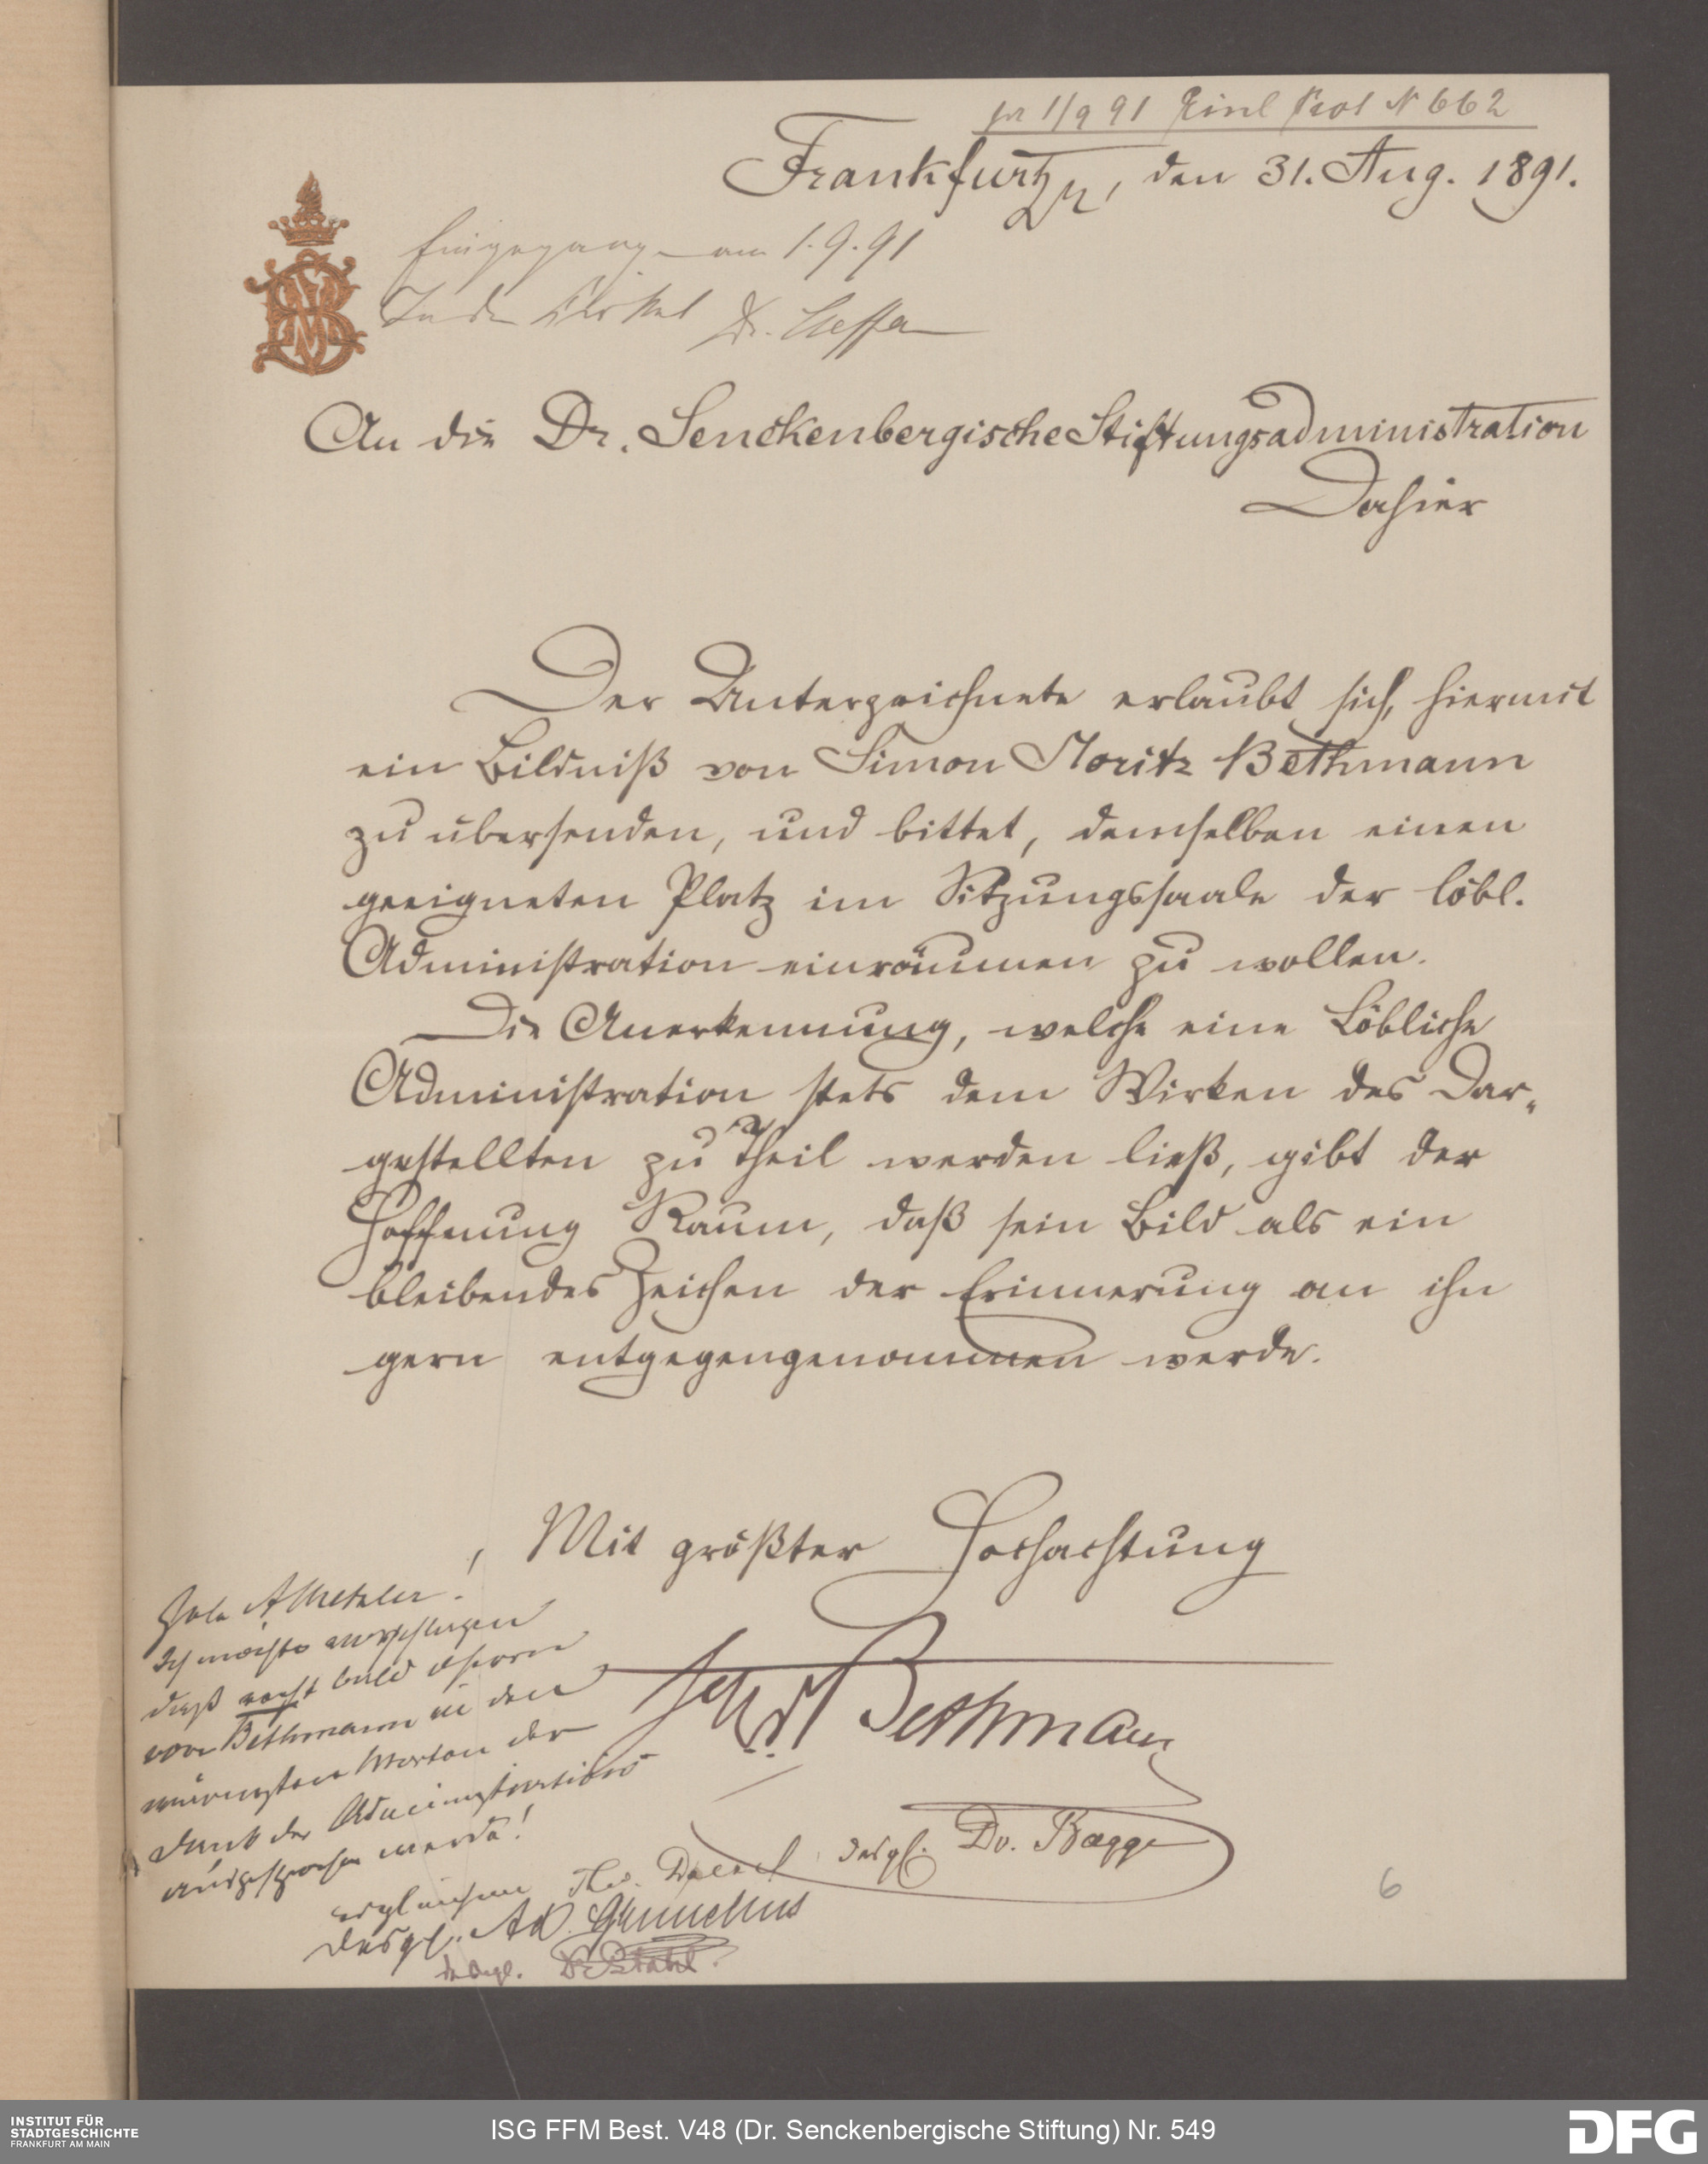 pr 1/9 91 Einl Prot N 662
Frankfurt a/M, den 31. Aug. 1891.
Eingegangen am 1.9.91
In den Zirkel Dr.
An die Dr. Senckenbergische Stiftungsadministration
Dahier
Der Unterzeichnete erlaubt sich, hiermit
ein Bildniß von Simon Moritz Bethmann
zu übersenden, und bittet, demselben einen
geeigneten Platz im Sitzungssaale der löbl.
Administration einräumen zu wollen.
Die Anerkennung, welche eine Löbliche
Administration stets dem Wirken des Dar-
gestellten zu Theil werden ließ, gibt der
Hoffnung Raum, daß sein Bild als ein
bleibendes Zeichen der Erinnerung an ihn
gern entgegengenommen werde.
Mit größter Hochachtung
Bethmann
A Metzler!
Ich möchte vorschlagen
daß recht bald Herrn
von Bethmann in den
wärmsten Worten der
Dank der Administration
ausgesprochen werde!
desgl. Dr. Bagge
desgleichen Theo.
desgl. Ad.
desgl. Dr Stahl.
6
INSTITUT FÜR
STADTGESCHICHTE
FRANKFURT AM MAIN
ISG FFM Best. V48 (Dr. Senckenbergische Stiftung) Nr. 549
DFG